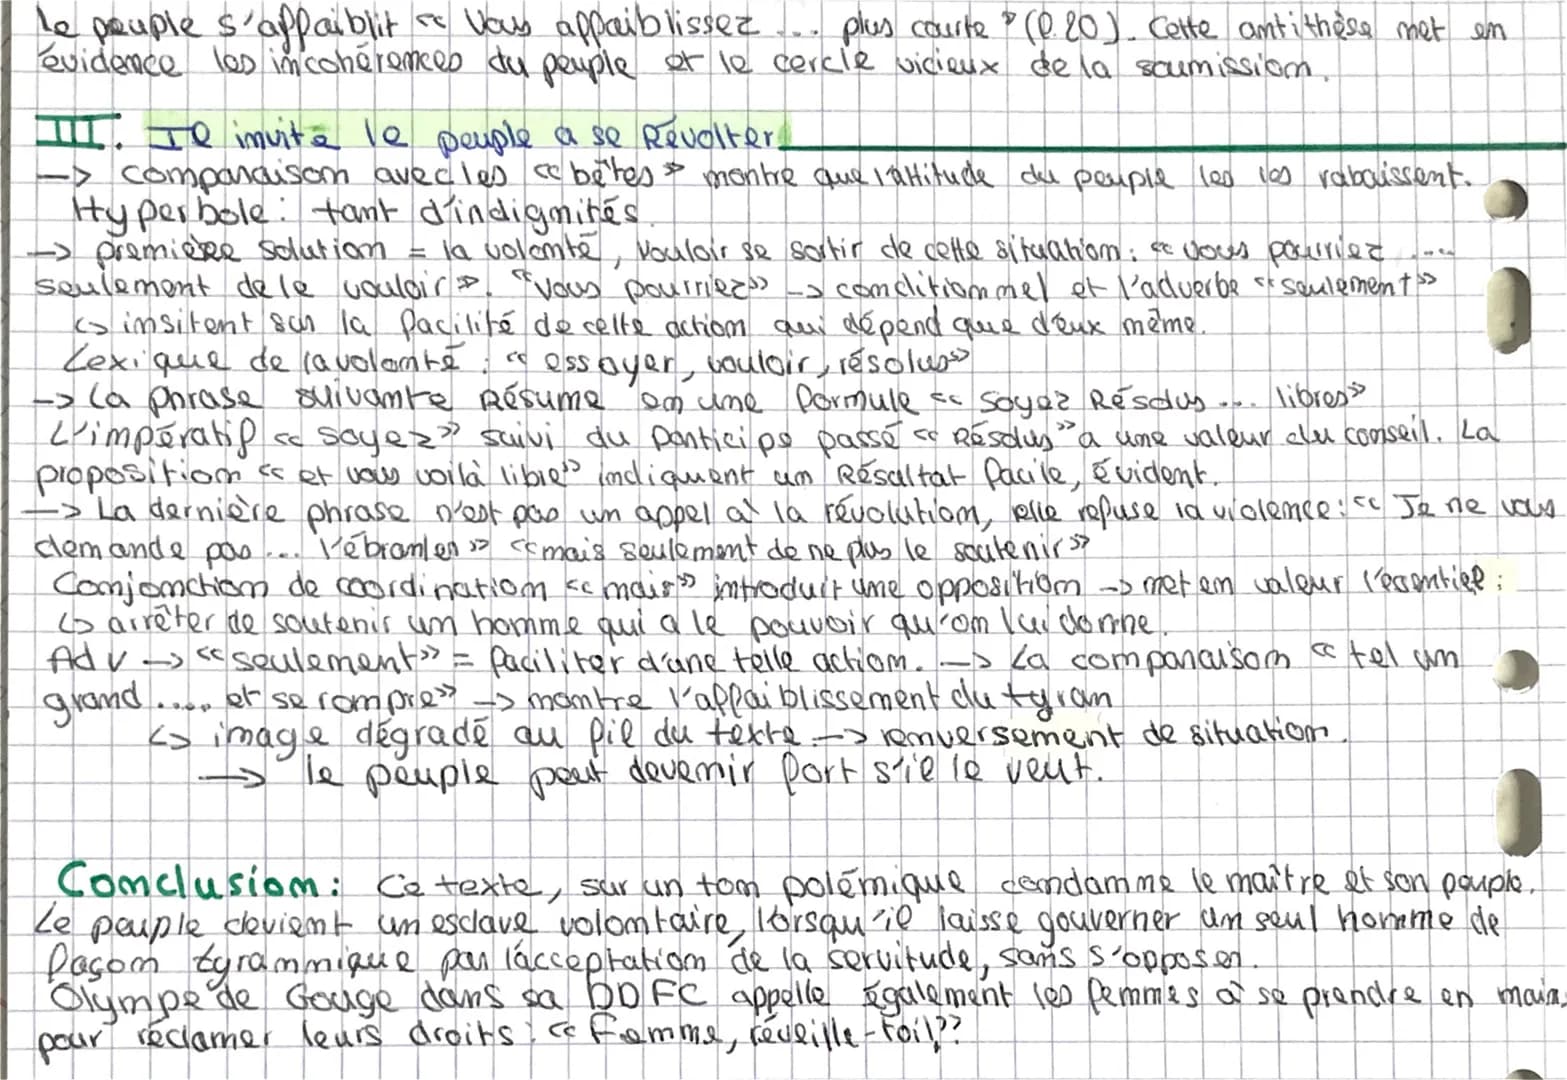 le peuple s'affaiblit << Vous affaiblissez ... plus courte >> (l.20). Cette antithèse met en
évidence les incohérences du peuple et le cercle vicieux de la soumission.
III. Il invite le peuple a se Révolter
-> comparaison avec les << bêtes >> montre que l'attitude du peuple les les rabaissent.
Hyperbole : tant d'indignités.
-> première solution = la volonté, vouloir se sortir de cette situation : << vous pourriez ....
seulement de le vouloir >>. "Vous pourriez" -> conditionnel et l'adverbe << seulement >>
↳ insitent sur la facilité de cette action qui dépend que d'eux même.
Lexique de la volonté : << essayer, vouloir, résolus >>
-> La phrase suivante Résume en une formule << Soyez Résolus ... libres >>
L'impératif << soyez >> suivi du participe passé << Résolus >> a une valeur du conseil. La
proposition << et vous voilà libre >> indiquent un Résultat facile, évident.
-> La dernière phrase n'est pas un appel à la révolution, elle refuse la violence : << Je ne vous
demande pas ... l'ébranler >> << mais seulement de ne plus le soutenir >>
Conjonction de coordination << mais >> introduit une opposition -> met en valeur l'essentiel :
↳ arrêter de soutenir un homme qui a le pouvoir qu'on lui donne.
Adv -> << seulement >> = faciliter d'une telle action. -> La comparaison << tel un
grand .... et se rompre >> -> montre l'affaiblissement du tyran
↳ image dégradé au fil du texte -> renversement de situation.
-> le peuple peut devenir fort s'il le veut.
Conclusion : Ce texte, sur un ton polémique condamne le maître et son peuple.
Le peuple devient un esclave volontaire, lorsqu'il laisse gouverner un seul homme de
façon tyrannique par l'acceptation de la servitude, sans s'opposer.
Olympe de Gouge dans sa DDFC appelle également les femmes à se prendre en main,
pour réclamer leurs droits : << Femme, réveille-toi! >>